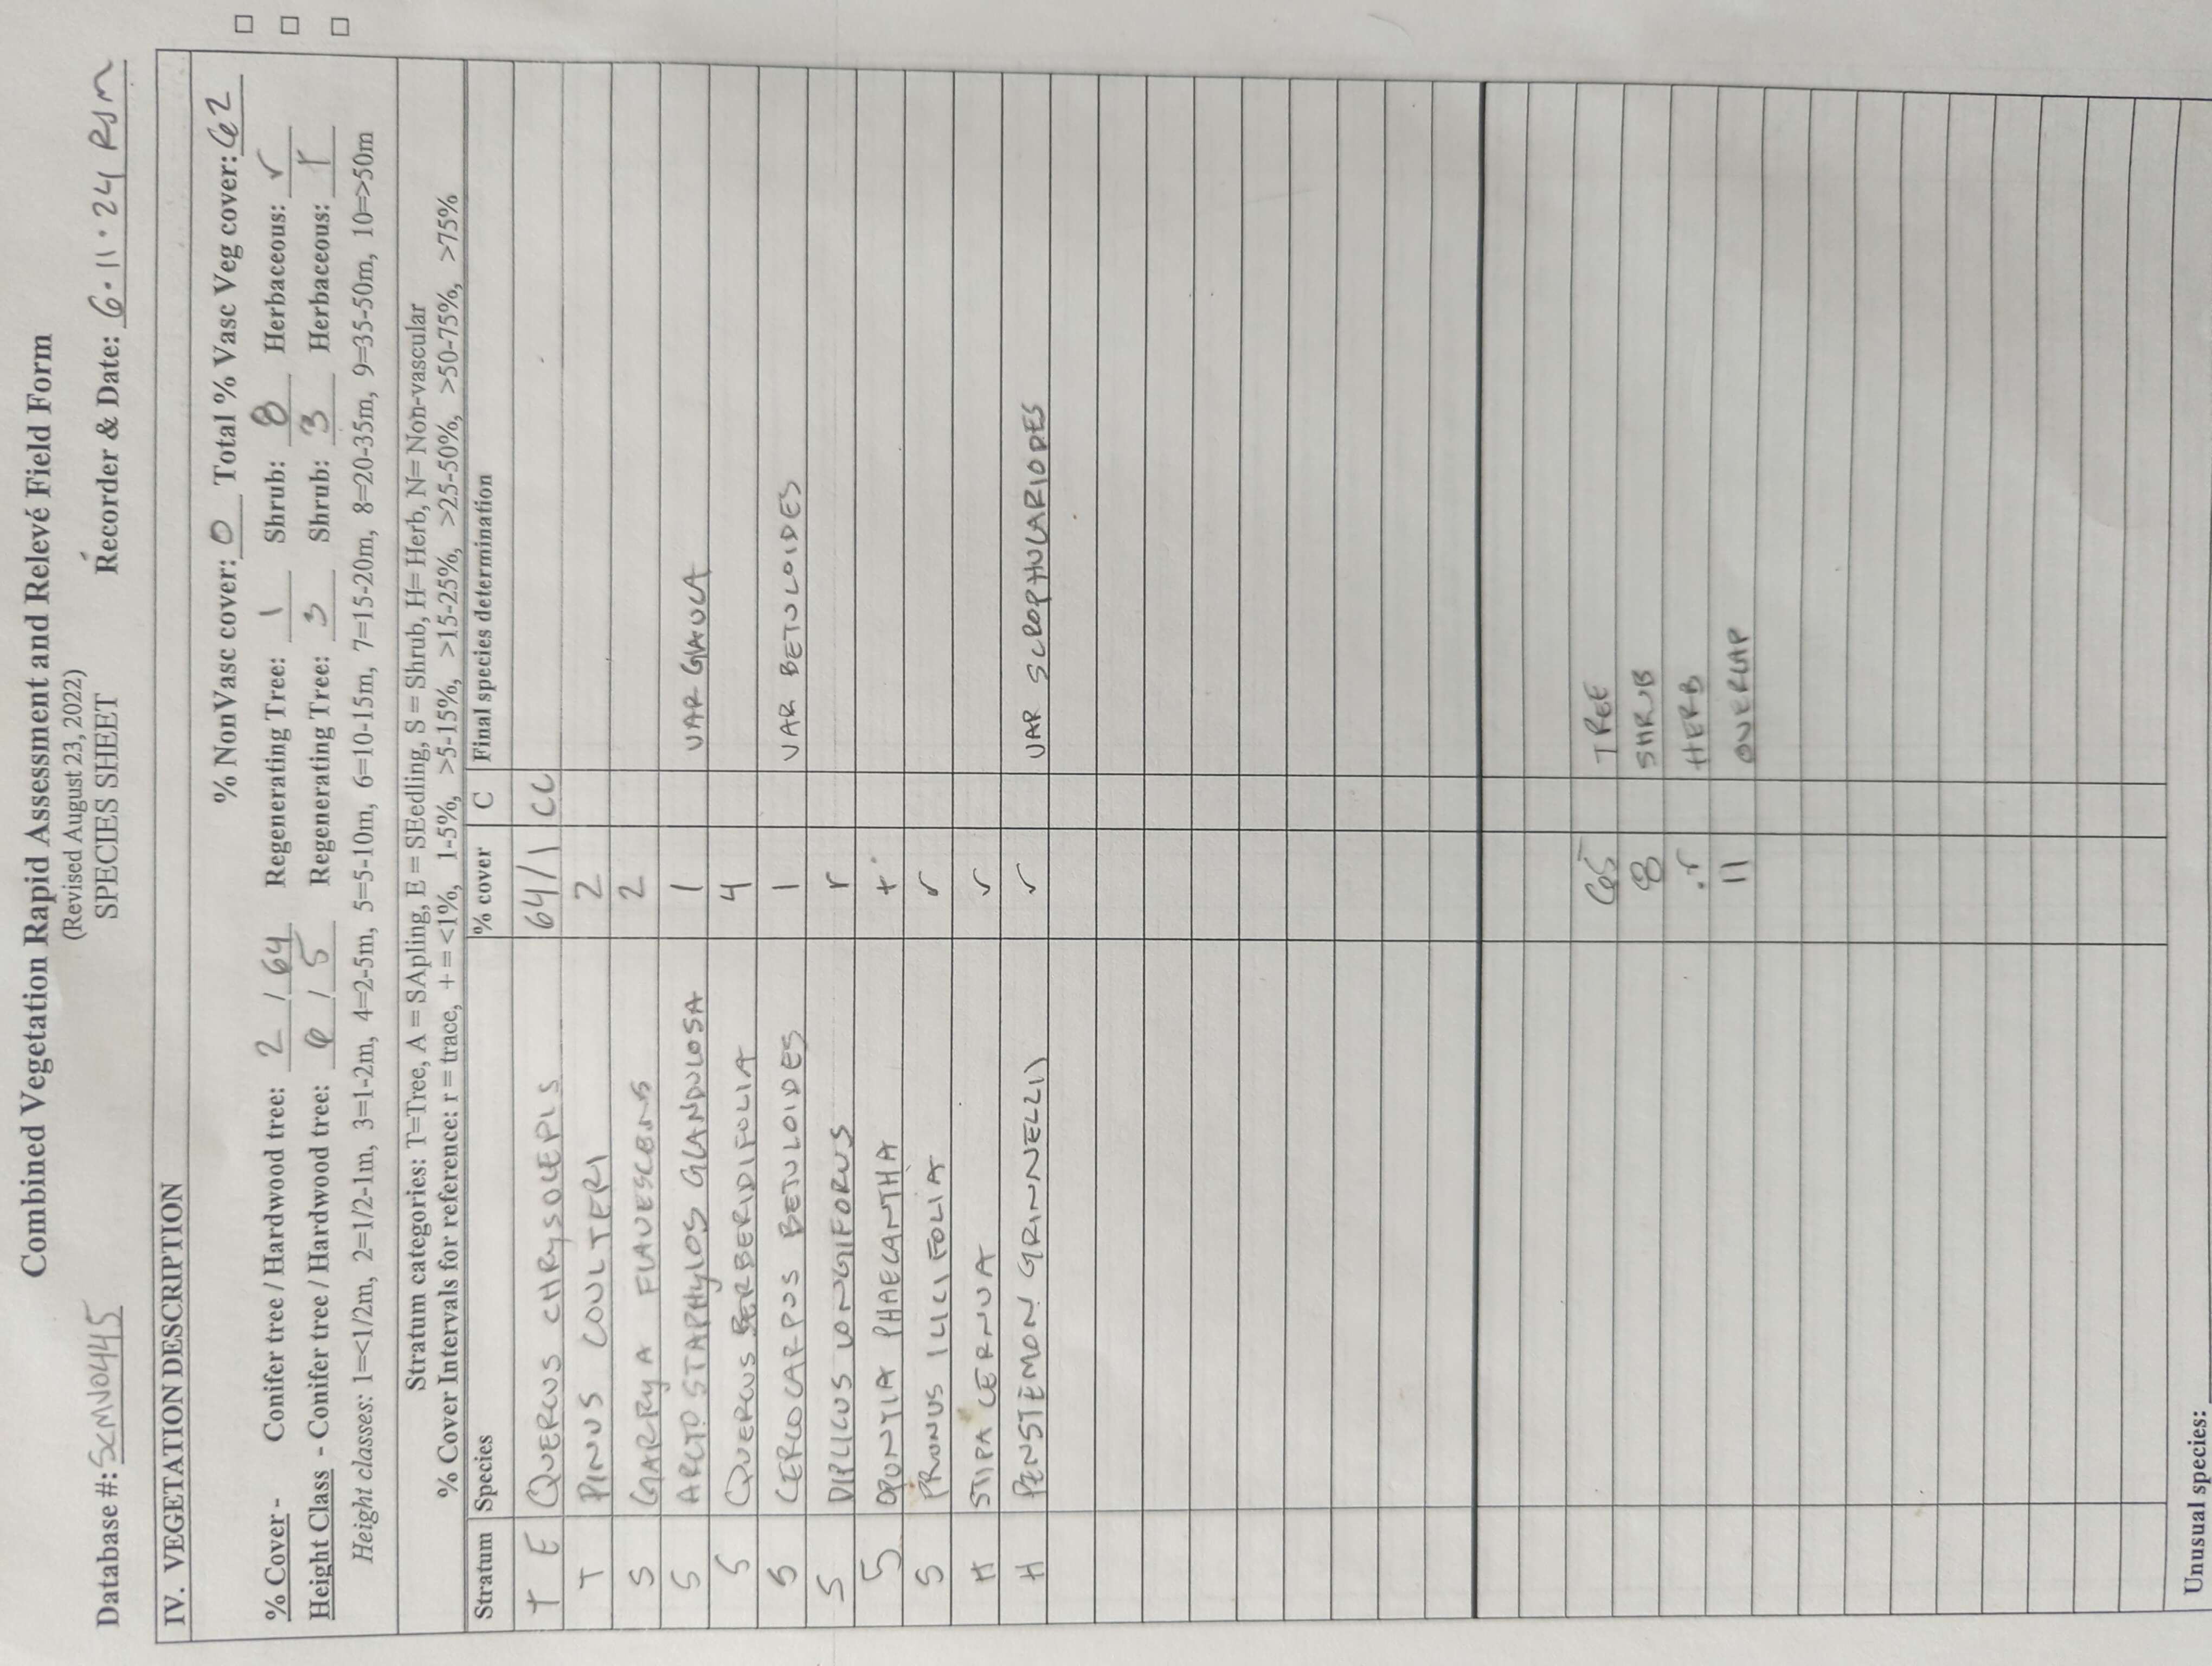 Combined Vegetation Rapid Assessment and Relevé Field Form
(Revised August 23, 2022)
SPECIES SHEET
Database #: SCMN0445 Recorder & Date: 6·11·24 RJM
IV. VEGETATION DESCRIPTION
% NonVasc cover: 0 Total % Vasc Veg cover: 62
% Cover - Conifer tree / Hardwood tree: 2 / 64 Regenerating Tree: 1 Shrub: 8 Herbaceous: r
Height Class - Conifer tree / Hardwood tree: 6 / 5 Regenerating Tree: 3 Shrub: 3 Herbaceous: 1
Height classes: 1=<1/2m, 2=1/2-1m, 3=1-2m, 4=2-5m, 5=5-10m, 6=10-15m, 7=15-20m, 8=20-35m, 9=35-50m, 10=>50m
Stratum categories: T=Tree, A = SApling, E = SEedling, S = Shrub, H= Herb, N= Non-vascular
% Cover Intervals for reference: r = trace, + = <1%, 1-5%, >5-15%, >15-25%, >25-50%, >50-75%, >75%
Stratum Species % cover C Final species determination
T E QUERCUS CHRYSOLEPIS 64/1 CC
T PINUS COULTERI 2
S GARRYA FLAVESCENS 2
S ARCTOSTAPHYLOS GLANDULOSA 1 VAR GLAUCA
S QUERCUS BERBERIDIFOLIA 4
S CERCOCARPUS BETULOIDES 1 VAR BETULOIDES
S DIPLICUS LONGIFORUS r
S OPUNTIA PHAECANTHA +
S PRUNUS ILICIFOLIA r
H STIPA CERNUA r
H PENSTEMON GRINNELLI) r VAR SCROPHULARIODES
65 TREE
8 SHRUB
r HERB
11 OVERLAP
Unusual species: